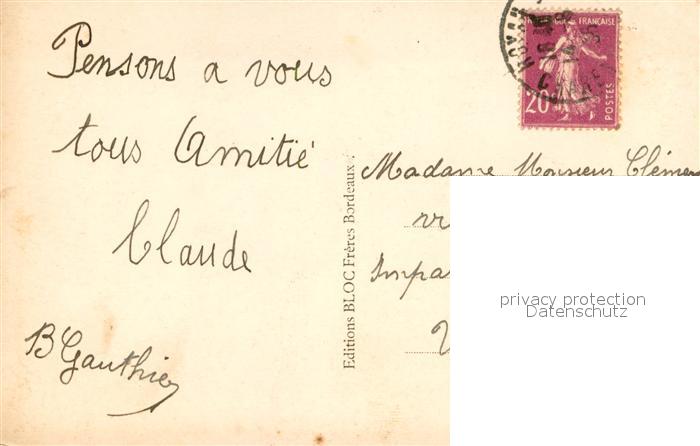 Pensons a vous
tous Amitié
Claude
B Gauthier
Editions BLOC Frères Bordeaux.
FRANÇAISE
20
POSTES
ROYAN
Madame Monsieur
privacy protection
Datenschutz